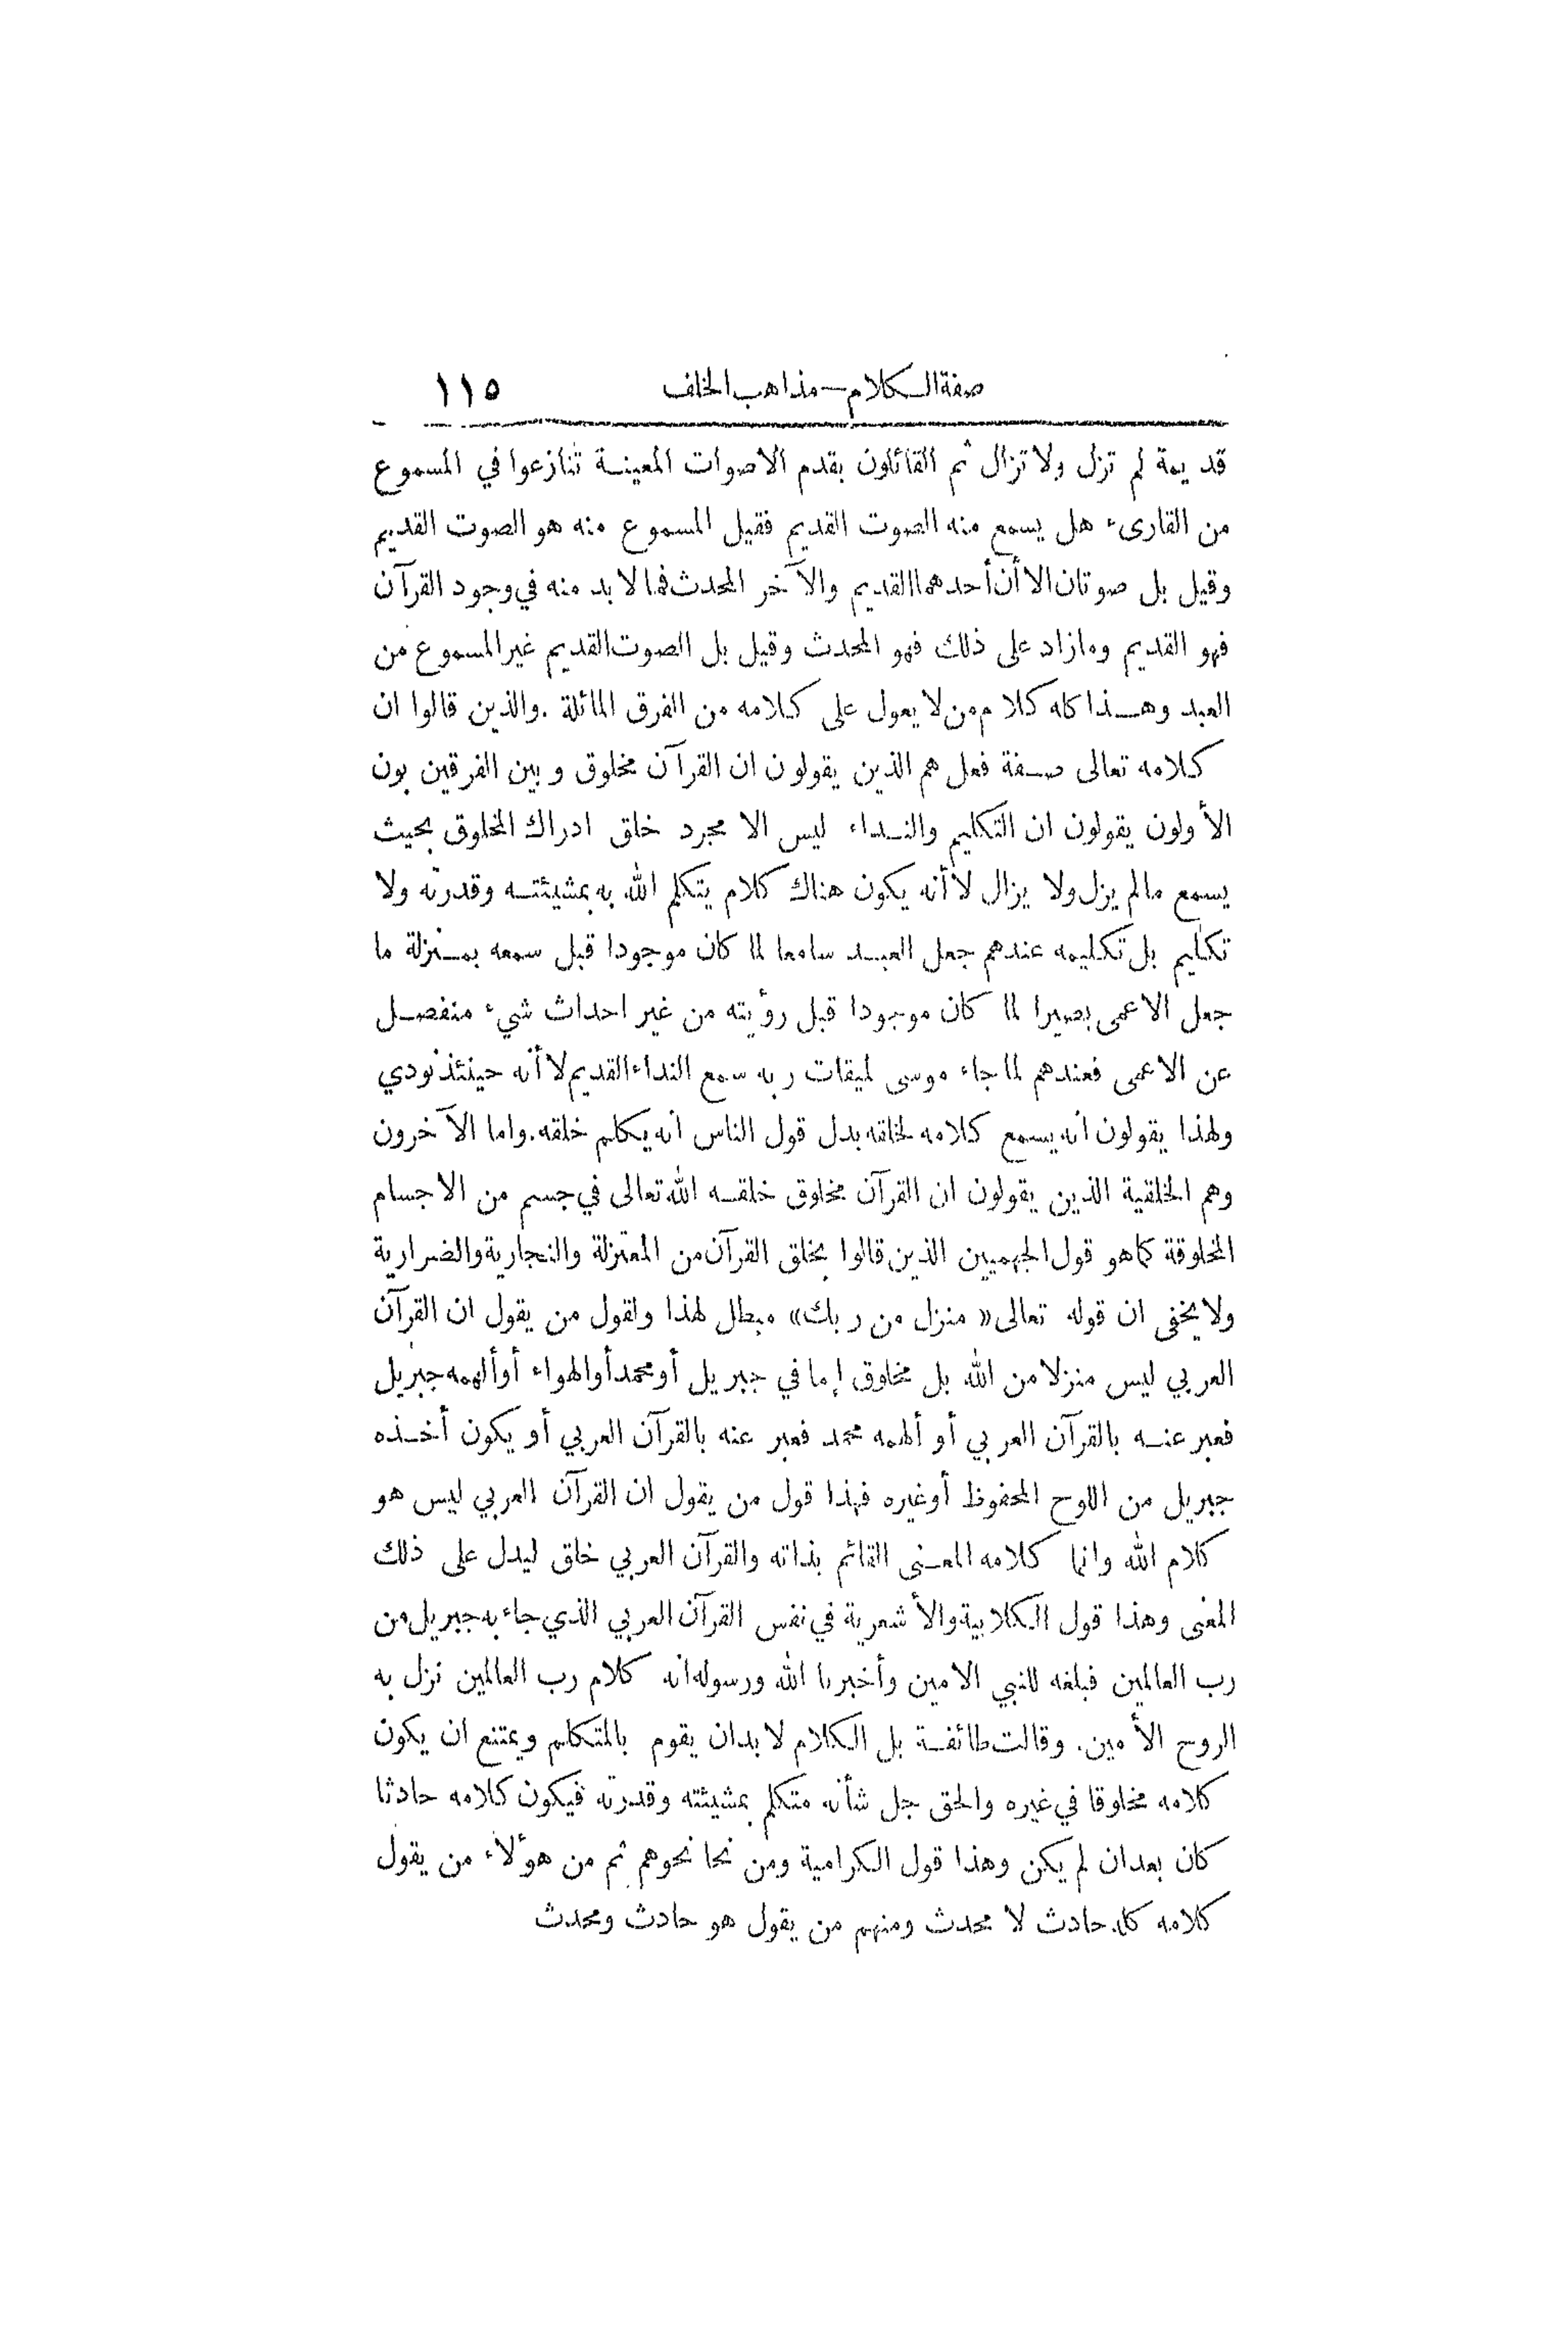 صفة الكلام — مذاهب الخلف ١١٥
قديمة لم تزل ولا تزال ثم القائلون بقدم الاصوات المعينة تنازعوا في المسموع
من القارىء هل يسمع منه الصوت القديم فقيل المسموع منه هو الصوت القديم
وقيل بل صوتان الا أن أحدهما القديم والآخر المحدث فما لا بد منه في وجود القرآن
فهو القديم وما زاد على ذلك فهو المحدث وقيل بل الصوت القديم غير المسموع من
العبد وهذا كله كلام من لا يعول على كلامه من الفرق المائلة . والذين قالوا ان
كلامه تعالى صفة فعل هم الذين يقولون ان القرآن مخلوق وبين الفرقين بون
الأولون يقولون ان التكليم والنداء ليس الا مجرد خلق ادراك المخلوق بحيث
يسمع مالم يزل ولا يزال لا أنه يكون هناك كلام يتكلم الله به بمشيئته وقدرته ولا
تكليم بل تكليمه عندهم جعل العبد سامعا لما كان موجودا قبل سمعه بمنزلة ما
جعل الاعمى بصيرا لما كان موجودا قبل رؤيته من غير احداث شيء منفصل
عن الاعمى فعندهم لما جاء موسى لميقات ربه سمع النداء القديم لا أنه حينئذ نودي
ولهذا يقولون أنه يسمع كلامه لخلقه بدل قول الناس انه يكلم خلقه . واما الآخرون
وهم الخلقية الذين يقولون ان القرآن مخلوق خلقه الله تعالى في جسم من الاجسام
المخلوقة كما هو قول الجهميين الذين قالوا بخلق القرآن من المعتزلة والنجارية والضرارية
ولا يخفى ان قوله تعالى « منزل من ربك » مبطل لهذا ولقول من يقول ان القرآن
العربي ليس منزلا من الله بل مخلوق إما في جبريل أو محمد أو الهواء أو ألهمه جبريل
فعبر عنه بالقرآن العربي أو ألهمه محمد فعبر عنه بالقرآن العربي أو يكون أخذه
جبريل من اللوح المحفوظ أو غيره فهذا قول من يقول ان القرآن العربي ليس هو
كلام الله وانما كلامه المعنى القائم بذاته والقرآن العربي خلق ليدل على ذلك
المعنى وهذا قول الكلابية والأشعرية في نفس القرآن العربي الذي جاء به جبريل من
رب العالمين فبلغه للنبي الامين وأخبرنا الله ورسوله انه كلام رب العالمين نزل به
الروح الأمين . وقالت طائفة بل الكلام لا بد ان يقوم بالمتكلم ويمتنع ان يكون
كلامه مخلوقا في غيره والحق جل شأنه متكلم بمشيئته وقدرته فيكون كلامه حادثا
كان بعد ان لم يكن وهذا قول الكرامية ومن نحا نحوهم ثم من هؤلاء من يقول
كلامه كله حادث لا محدث ومنهم من يقول هو حادث ومحدث